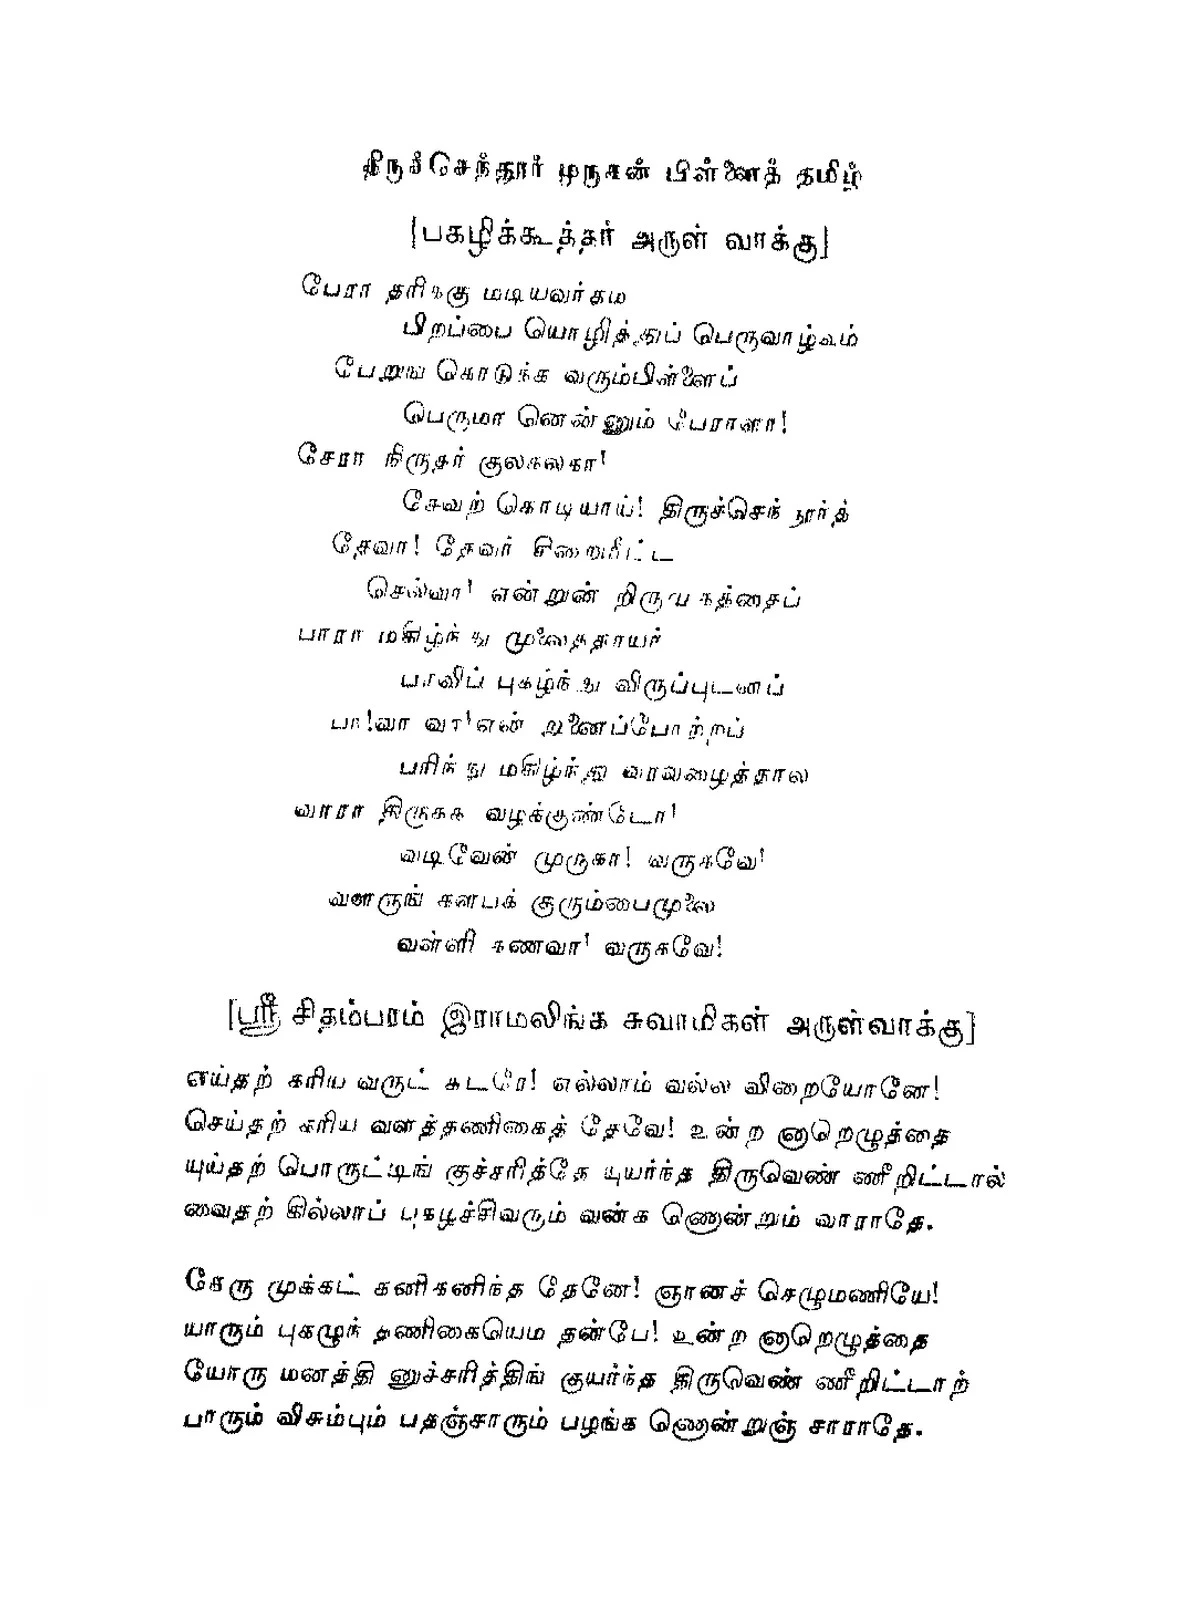 திருச்செந்தூர் முருகன் பிள்ளைத் தமிழ்
[பகழிக்கூத்தர் அருள் வாக்கு]
பேரா தரிக்கு மடியவர்தம
பிறப்பை யொழித்துப் பெருவாழ்வும்
பேறுங கொடுக்க வரும்பிள்ளைப்
பெருமா னென்னும் பேராளா!
சேரா நிருதர் குலகலகா!
சேவற் கொடியாய்! திருச்செந்தூர்த்
தேவா! தேவர் சிறைமீட்ட
செல்வா! என்றுன் றிருமுகத்தைப்
பாரா மகிழ்ந்து முலைதாயர்
பரவிப் புகழ்ந்து விருப்புடனப்
பா!வா வா!என் றுனைப்போற்றப்
பரிந்து மகிழ்ந்து வரவழைத்தால
வாரா திருகக வழக்குண்டோ!
வடிவேன் முருகா! வருகவே!
வளருங் களபக் குரும்பைமுலை
வள்ளி கணவா! வருகவே!
[ஸ்ரீ சிதம்பரம் இராமலிங்க சுவாமிகள் அருள்வாக்கு]
எய்தற் கரிய வருட் சுடரே! எல்லாம் வல்ல விறையோனே!
செய்தற் கரிய வளத்தணிகைத் தேவே! உன்ற னாறெழுத்தை
யுய்தற் பொருட்டிங் குச்சரித்தே யுயர்ந்த திருவெண் ணீறிட்டால்
வைதற் கில்லாப் புகழ்ச்சிவரும் வன்க ணொன்றும் வாராதே.
சேரு முக்கட் கனிகனிந்த தேனே! ஞானச் செழுமணியே!
யாரும் புகழுந் தணிகையெம தன்பே! உன்ற னாறெழுத்தை
யோரு மனத்தி னுச்சரித்திங் குயர்ந்த திருவெண் ணீறிட்டாற்
பாரும் விசும்பும் பதஞ்சாரும் பழங்க ணொன்றுஞ் சாராதே.